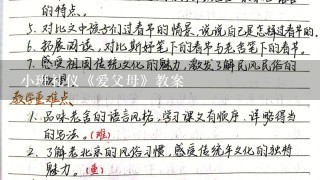 的特点。
5. 对比文中孩子们过春节的情景,说说自己是怎样过春节的。
6. 拓展阅读,对比斯好笔下的春节与老舍笔下的春节。
7. 感受祖国传统文化的魅力,激发了解民风民俗的
小班礼仪《爱父母》教案
教学重难点
1. 品味老舍的语言风格,学习课文有顺序,详略得当
的写法。(难)
2. 了解老北京的风俗习惯,感受传统年文化的独特
魅力。(重)